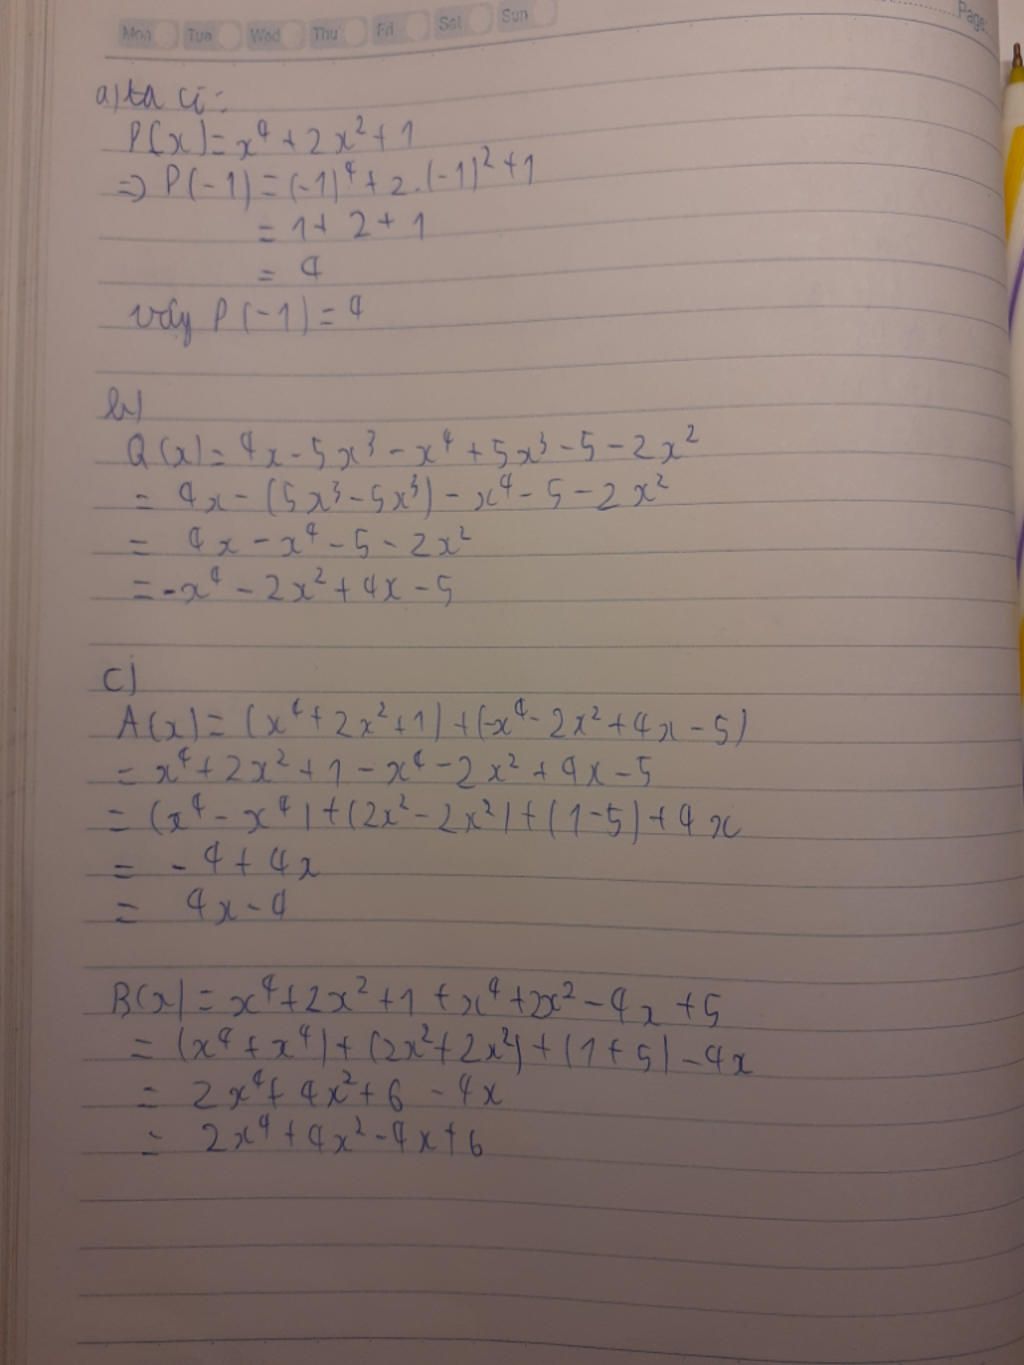 Mon Tue Wed Thu Fri Sat Sun
Page:
a) ta có:
P(x) = x⁴ + 2x² + 1
=> P(-1) = (-1)⁴ + 2.(-1)² + 1
= 1 + 2 + 1
= 4
vậy P(-1) = 4
b)
Q(x) = 4x - 5x³ - x⁴ + 5x³ - 5 - 2x²
= 4x - (5x³ - 5x³) - x⁴ - 5 - 2x²
= 4x - x⁴ - 5 - 2x²
= -x⁴ - 2x² + 4x - 5
c)
A(x) = (x⁴ + 2x² + 1) + (-x⁴ - 2x² + 4x - 5)
= x⁴ + 2x² + 1 - x⁴ - 2x² + 4x - 5
= (x⁴ - x⁴) + (2x² - 2x²) + (1 - 5) + 4x
= - 4 + 4x
= 4x - 4
B(x) = x⁴ + 2x² + 1 + x⁴ + 2x² - 4x + 5
= (x⁴ + x⁴) + (2x² + 2x²) + (1 + 5) - 4x
= 2x⁴ + 4x² + 6 - 4x
= 2x⁴ + 4x² - 4x + 6